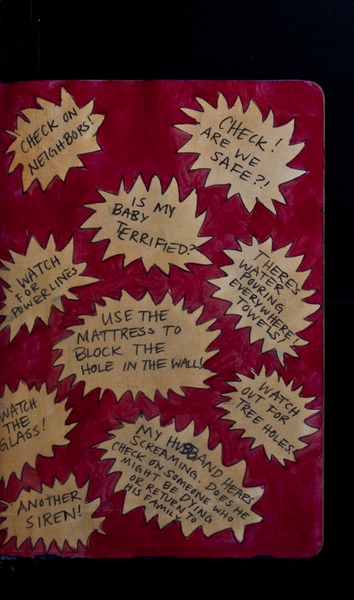 CHECK ON
NEIGHBORS!
CHECK!
ARE WE
SAFE?!
IS MY
BABY
TERRIFIED?
WATCH
FOR
POWERLINES
THERE'S
WATER
POURING
EVERYWHERE!
TOWELS!
USE THE
MATTRESS TO
BLOCK THE
HOLE IN THE WALL!
WATCH
THE
GLASS!
WATCH
OUT FOR
TREE HOLES
MY HUSBAND HEARS
SCREAMING. DOES HE
CHECK ON SOMEONE WHO
MIGHT BE DYING
OR RETURN TO
HIS FAMILY
ANOTHER
SIREN!